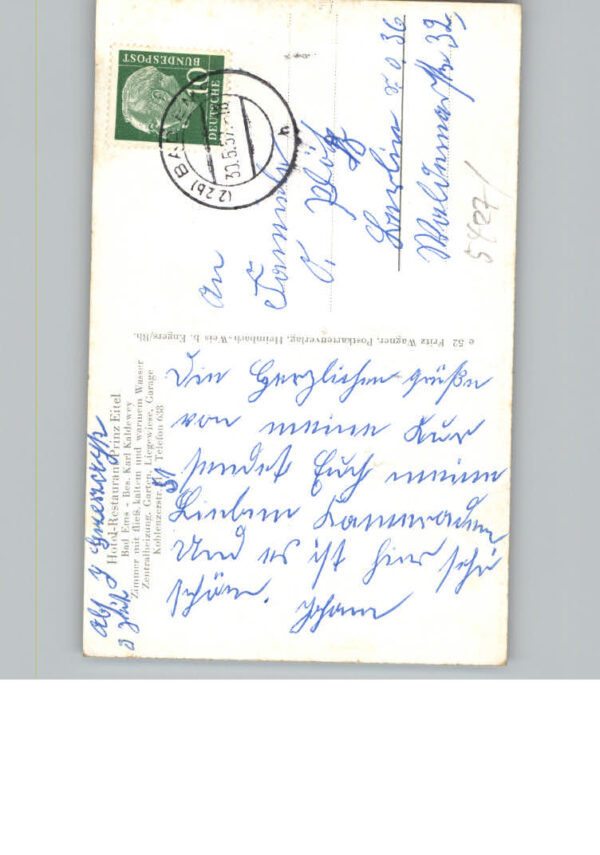 DEUTSCHE
BUNDESPOST
10
(22b) BAD EMS
30.5.57
h
An
Familie
O.
Berlin S.O. 36
Waldemarstr. 32
5427/
e 52 Fritz Wagner, Postkartenverlag, Heimbach-Weis b. Engers/Rh.
Hotel-Restaurant Prinz Eitel
Bad Ems - Bes. Karl Kaldewey
Zimmer mit fließ. kaltem und warmem Wasser
Zentralheizung, Garten, Liegewiese, Garage
Koblenzerstr. 51 Telefon 638
Abs J
Die Herzlichen grüße
von meine Kur
sendet Euch meine
Lieben Kameraden
Und es ist hier sehr
schön. Johann